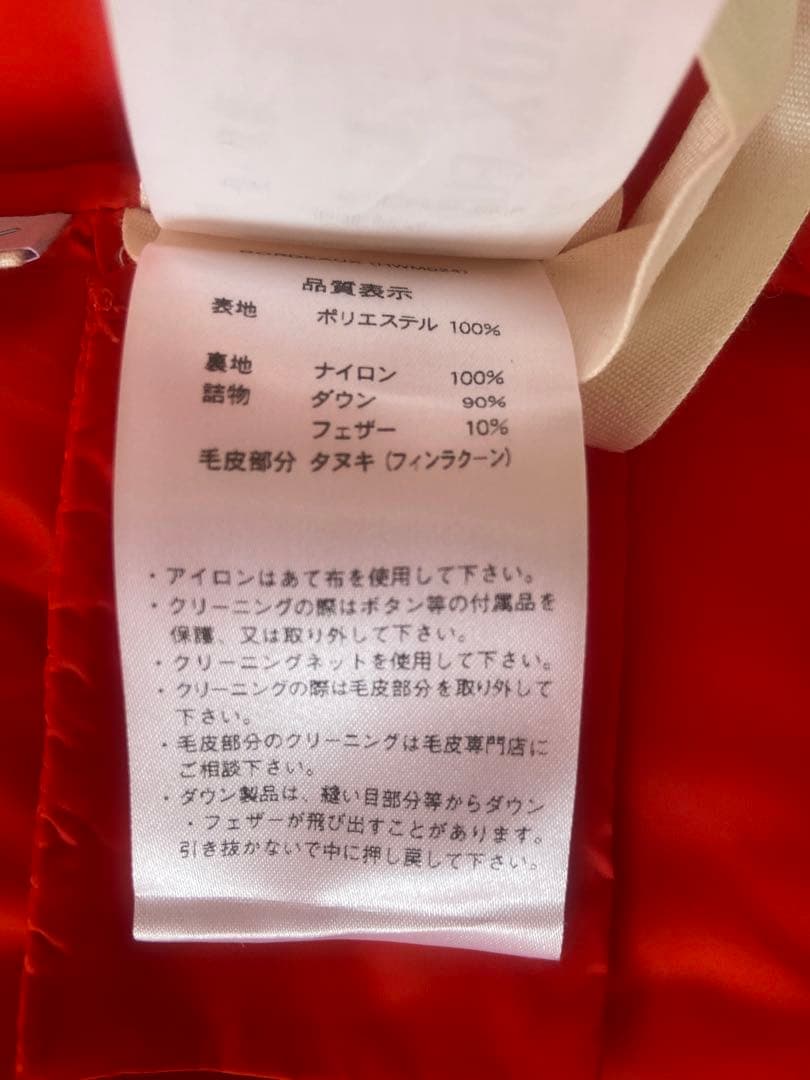 品質表示
表地 ポリエステル 100%
裏地 ナイロン 100%
詰物 ダウン 90%
フェザー 10%
毛皮部分 タヌキ (フィンラクーン)
・アイロンはあて布を使用して下さい。
・クリーニングの際はボタン等の付属品を
保護、又は取り外して下さい。
・クリーニングネットを使用して下さい。
・クリーニングの際は毛皮部分を取り外して
下さい。
・毛皮部分のクリーニングは毛皮専門店に
ご相談下さい。
・ダウン製品は、縫い目部分等からダウン
・フェザーが飛び出すことがあります。
引き抜かないで中に押し戻して下さい。